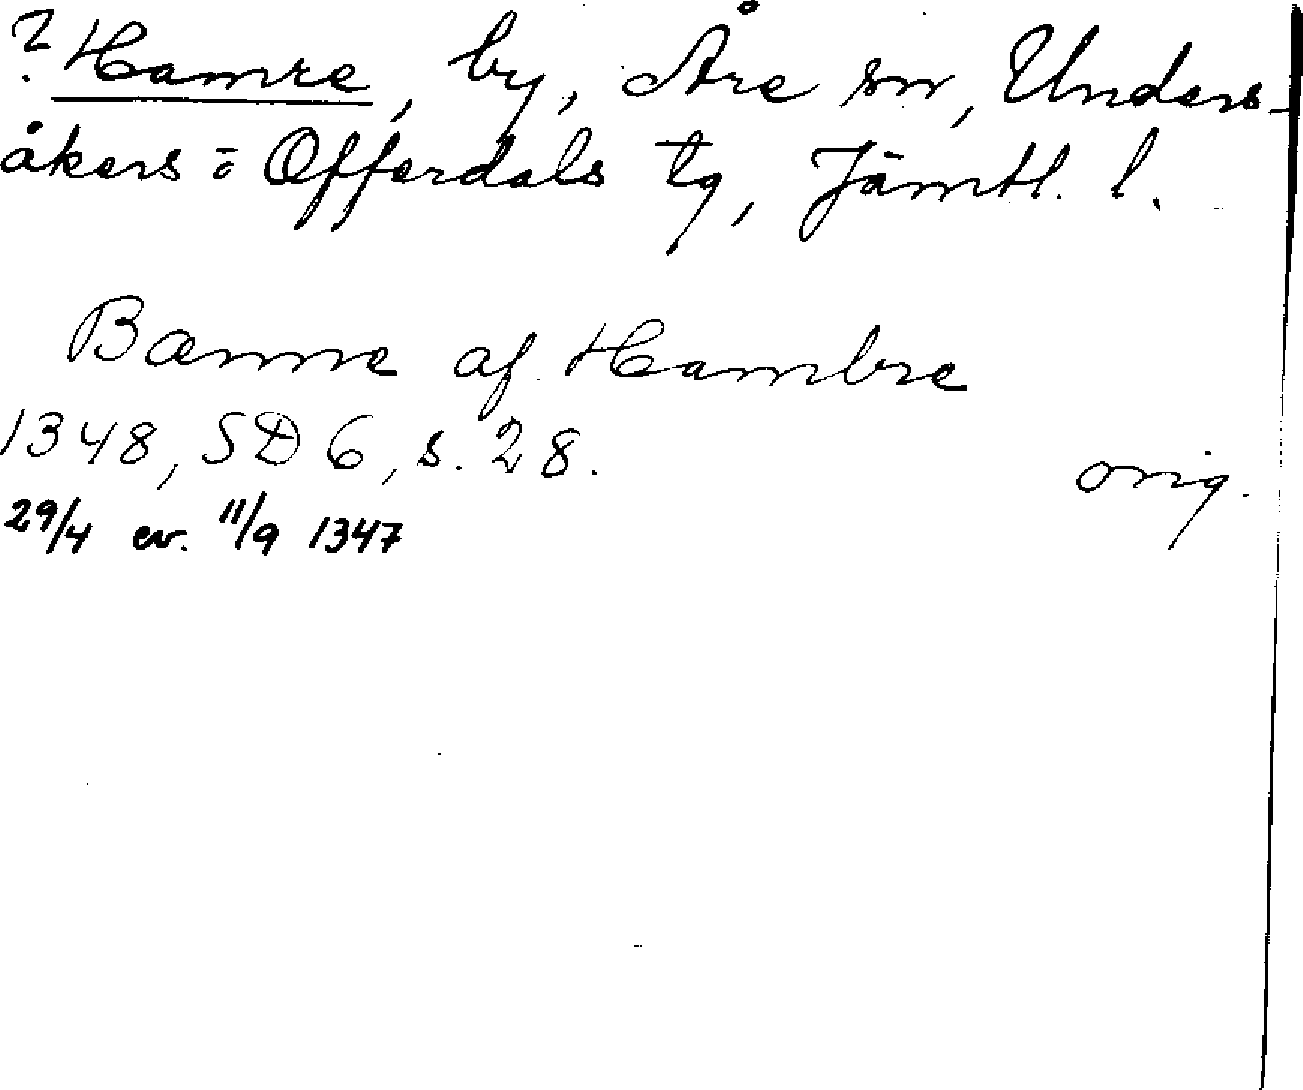 ? Hamre, by, Åre sn, Unders-
åkers o Offerdals tg, Jämtl. l.
Bænne af Hambre
1348, SD 6, s. 28.
orig.
29/4 ev. 11/9 1347